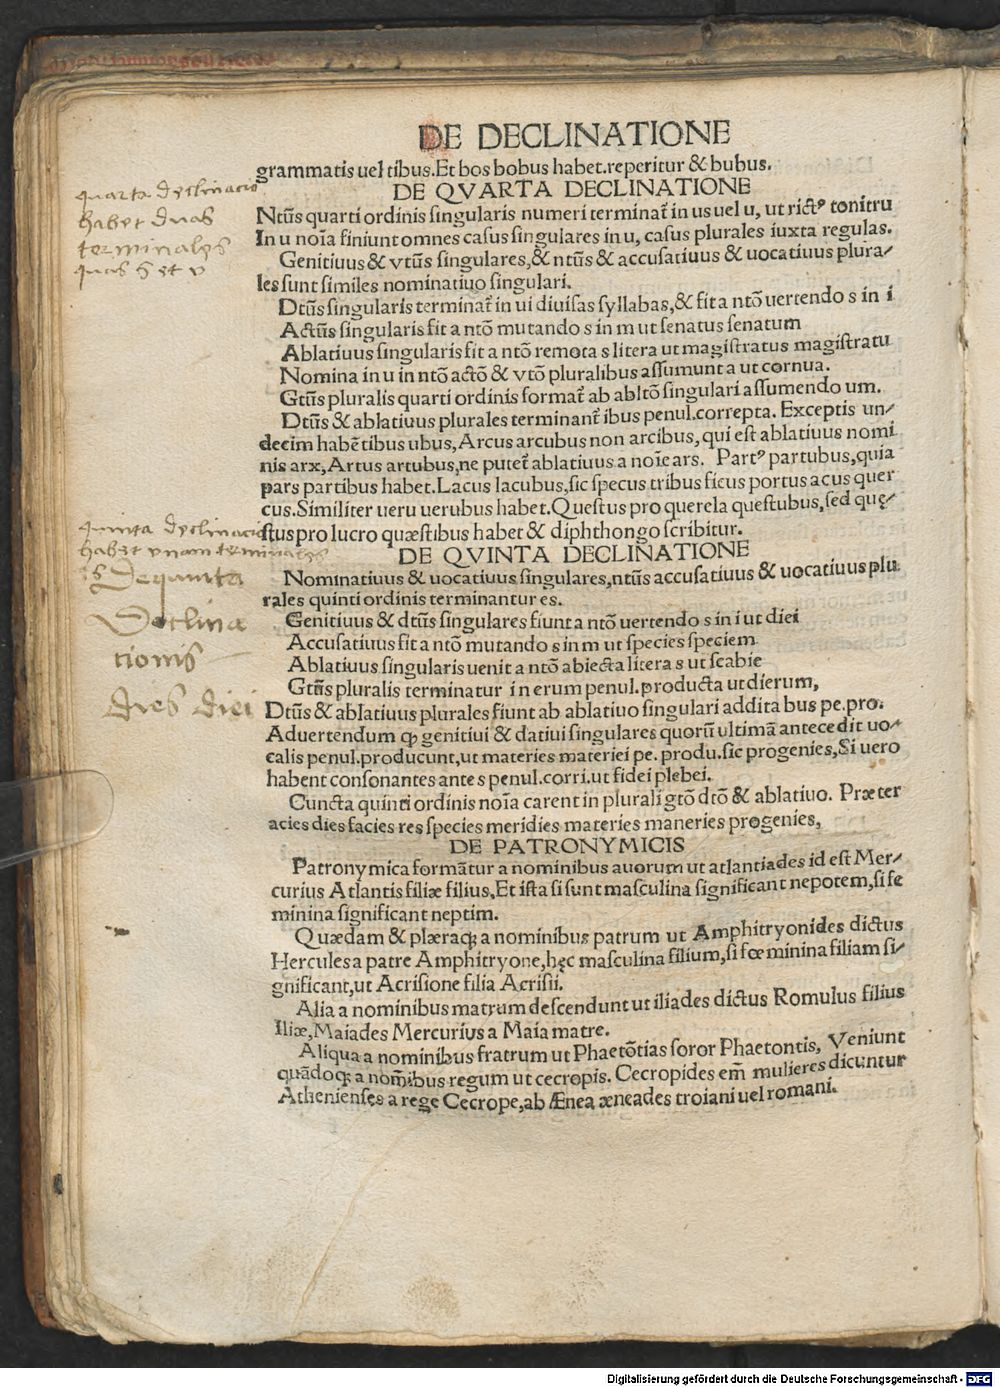 DE DECLINATIONE
grammatis uel tibus. Et bos bobus habet. reperitur & bubus.
DE QVARTA DECLINATIONE
Ntũs quarti ordinis singularis numeri terminat̃ in us uel u, ut rictꝰ tonitru
In u noĩa finiunt omnes casus singulares in u, casus plurales iuxta regulas.
Genitiuus & vtũs singulares, & ntũs & accusatiuus & uocatiuus plura-
les sunt similes nominatiuo singulari.
Dtũs singularis terminat̃ in ui diuisas syllabas, & fit a ntõ uertendo s in i
Actũs singularis fit a ntõ mutando s in m ut senatus senatum
Ablatiuus singularis fit a ntõ remota s litera ut magistratus magistratu
Nomina in u in ntõ actõ & vtõ pluralibus assumunt a ut cornua.
Gtũs pluralis quarti ordinis format̃ ab abltõ singulari assumendo um.
Dtũs & ablatiuus plurales terminant̃ ibus penul. correpta. Exceptis un-
decim habẽtibus ubus, Arcus arcubus non arcibus, qui est ablatiuus nomi
nis arx, Artus artubus, ne putet̃ ablatiuus a noĩe ars. Partꝰ partubus, quia
pars partibus habet. Lacus lacubus, sic specus tribus ficus portus acus quer
cus. Similiter ueru uerubus habet. Questus pro querela questubus, sed quę-
stus pro lucro quæstibus habet & diphthongo scribitur.
DE QVINTA DECLINATIONE
Nominatiuus & uocatiuus singulares, ntũs accusatiuus & uocatiuus plu
rales quinti ordinis terminantur es.
Genitiuus & dtũs singulares fiunt a ntõ uertendo s in i ut diei
Accusatiuus fit a ntõ mutando s in m ut species speciem
Ablatiuus singularis uenit a ntõ abiecta litera s ut scabie
Gtũs pluralis terminatur in erum penul. producta ut dierum,
Dtũs & ablatiuus plurales fiunt ab ablatiuo singulari addita bus pe. pro.
Aduertendum ꝙ genitiui & datiui singulares quorũ ultimã antecedit uo-
calis penul. producunt, ut materies materiei pe. produ. sic progenies, Si uero
habent consonantes ante s penul. corri. ut fidei plebei.
Cuncta quinti ordinis noĩa carent in plurali gtõ dtõ & ablatiuo. Præter
acies dies facies res species meridies materies maneries progenies,
DE PATRONYMICIS
Patronymica formãtur a nominibus auorum ut atlantiades id est Mer-
curius Atlantis filiæ filius, Et ista si sunt masculina significant nepotem, si fe
minina significant neptim.
Quædam & plæraqꝫ a nominibus patrum ut Amphitryonides dictus
Hercules a patre Amphitryone, hęc masculina filium, si fœminina filiam si-
gnificant, ut Acrisione filia Acrisii.
Alia a nominibus matrum descendunt ut iliades dictus Romulus filius
Iliæ, Maiades Mercurius a Maia matre.
Aliqua a nominibus fratrum ut Phaetõtias soror Phaetontis, Veniunt
quãdoqꝫ a nom̃ibus regum ut cecropis. Cecropides em̃ mulieres dicuntur
Athenienses a rege Cecrope, ab Ænea æneades troiani uel romani.
quarta declinacio
habet duas
terminales
quas s et v
quinta declinacio
habet vnam terminales
es De quinta
Declina
tionis
dies diei
Digitalisierung gefördert durch die Deutsche Forschungsgemeinschaft - DFG